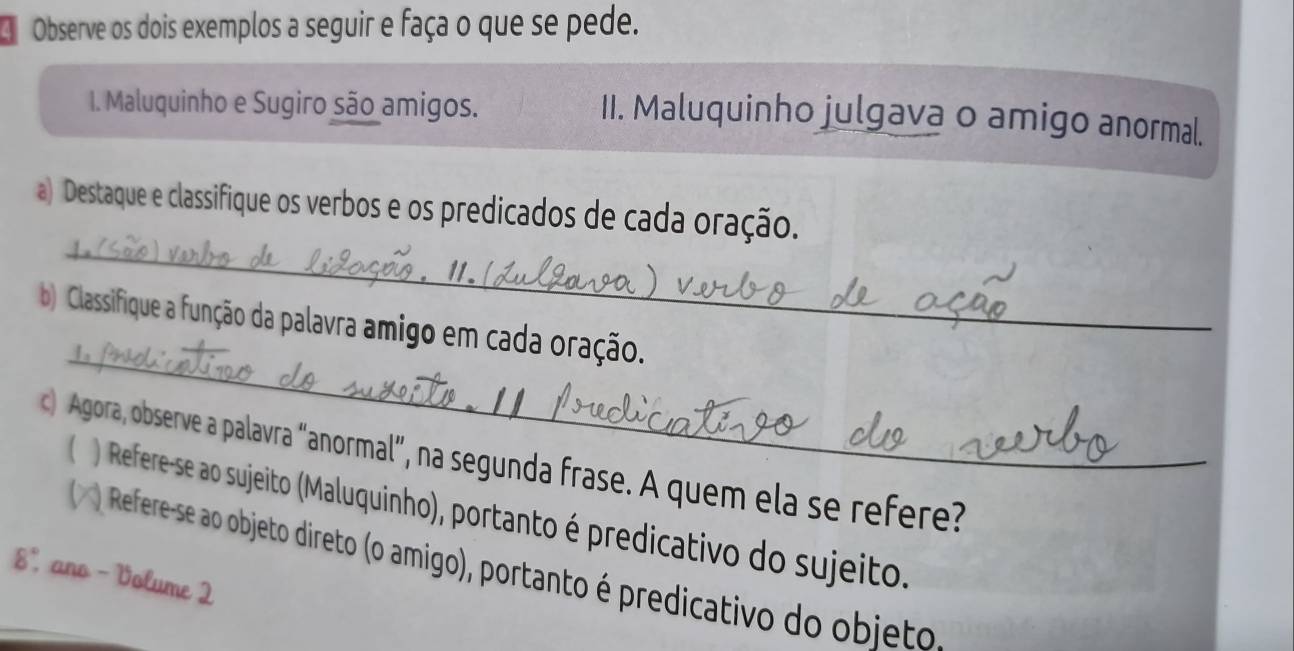 4 Observe os dois exemplos a seguir e faça o que se pede.
I. Maluquinho e Sugiro são amigos. II. Maluquinho julgava o amigo anormal.
a) Destaque e classifique os verbos e os predicados de cada oração.
1. (São) verbo de ligação. II. (Julgava) verbo de ação
b) Classifique a função da palavra amigo em cada oração.
1. predicativo do sujeito. II Predicativo do verbo
c) Agora, observe a palavra “anormal”, na segunda frase. A quem ela se refere?
( ) Refere-se ao sujeito (Maluquinho), portanto é predicativo do sujeito.
(X) Refere-se ao objeto direto (o amigo), portanto é predicativo do objeto.
8º. ano - Volume 2